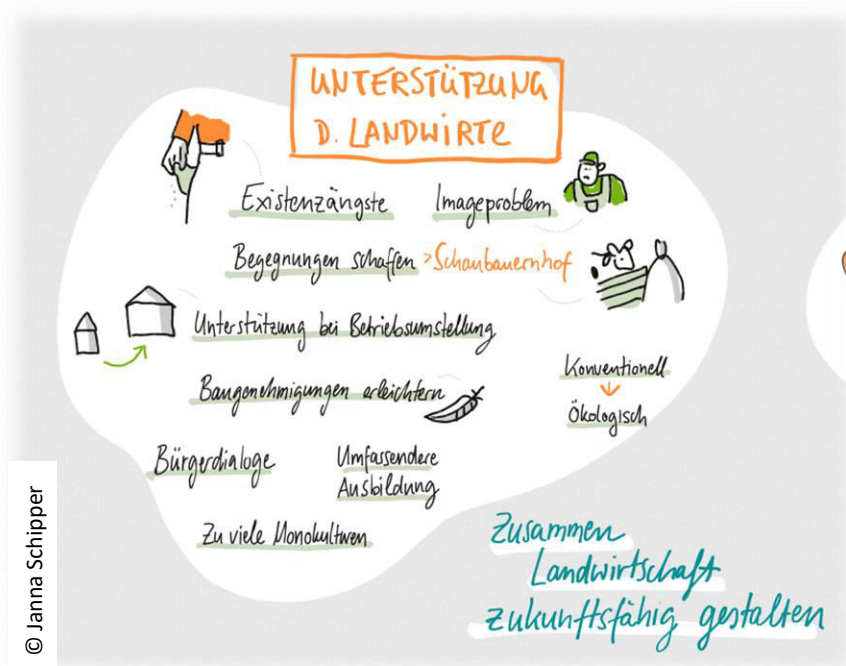 UNTERSTÜTZUNG
D. LANDWIRTE
Existenzängste
Imageproblem
Begegnungen schaffen > Schaubauernhof
Unterstützung bei Betriebsumstellung
Baugenehmigungen erleichtern
Konventionell
Ökologisch
Bürgerdialoge
Umfassendere
Ausbildung
Zu viele Monokulturen
Zusammen
Landwirtschaft
zukunftsfähig gestalten
© Janna Schipper